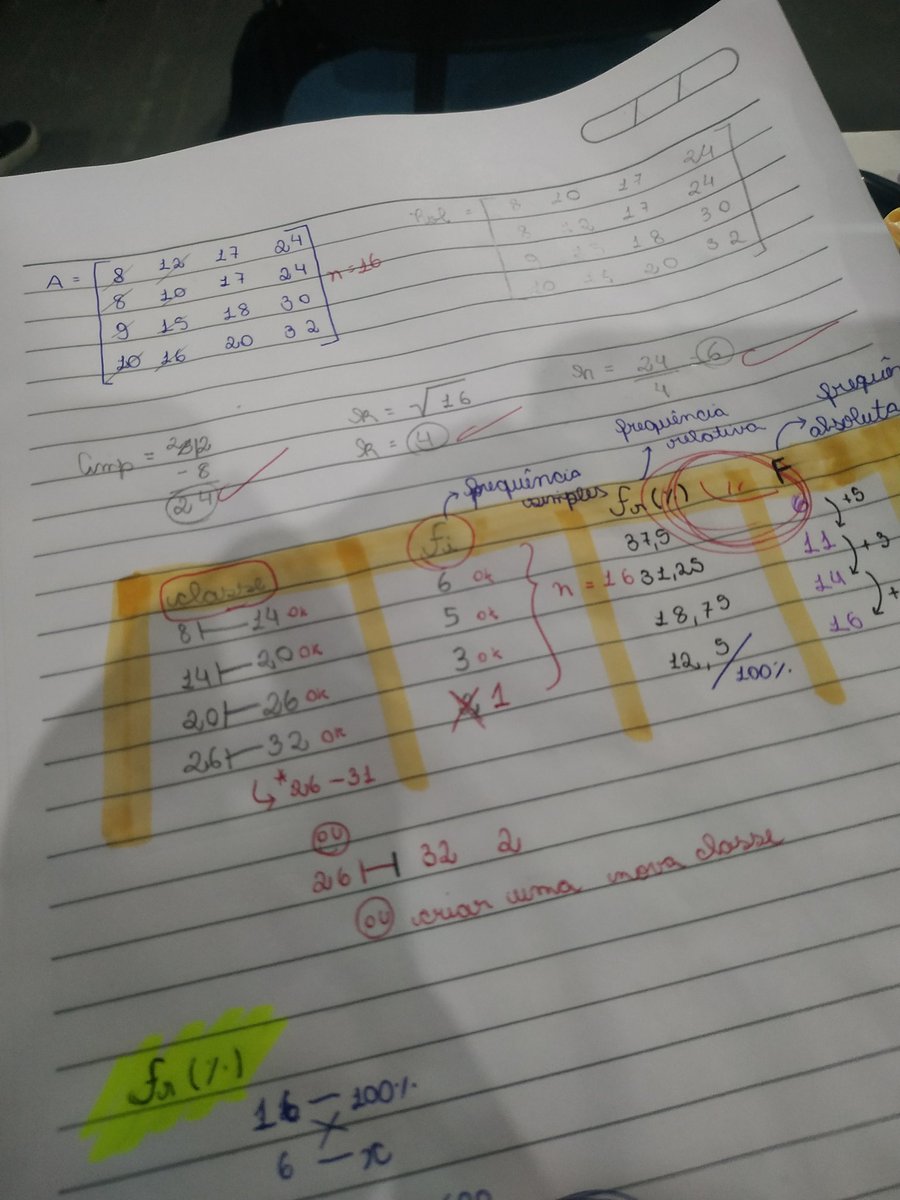 A = 8 12 17 24
8 10 17 24
9 15 18 30
10 16 20 32
n=16
Rol = 8 10 17 24
8 12 17 24
9 15 18 30
10 16 20 32
Amp = 32
- 8
24
K = √16
K = 4
h = 24/4 = 6
frequência simples
frequência relativa
absoluta
classe fi fr(%) F
8 ⊢ 14 OK 6 OK 37,5 6 +5
14 ⊢ 20 OK 5 OK n = 16 31,25 11 +3
20 ⊢ 26 OK 3 OK 18,75 14 +
26 ⊢ 32 OK 2 1 12,5 / 100% 16
↳ * 26 - 31
OU
26 ⊢⊣ 32 2
OU criar uma nova classe
fr (%)
16 — 100%
6 — x